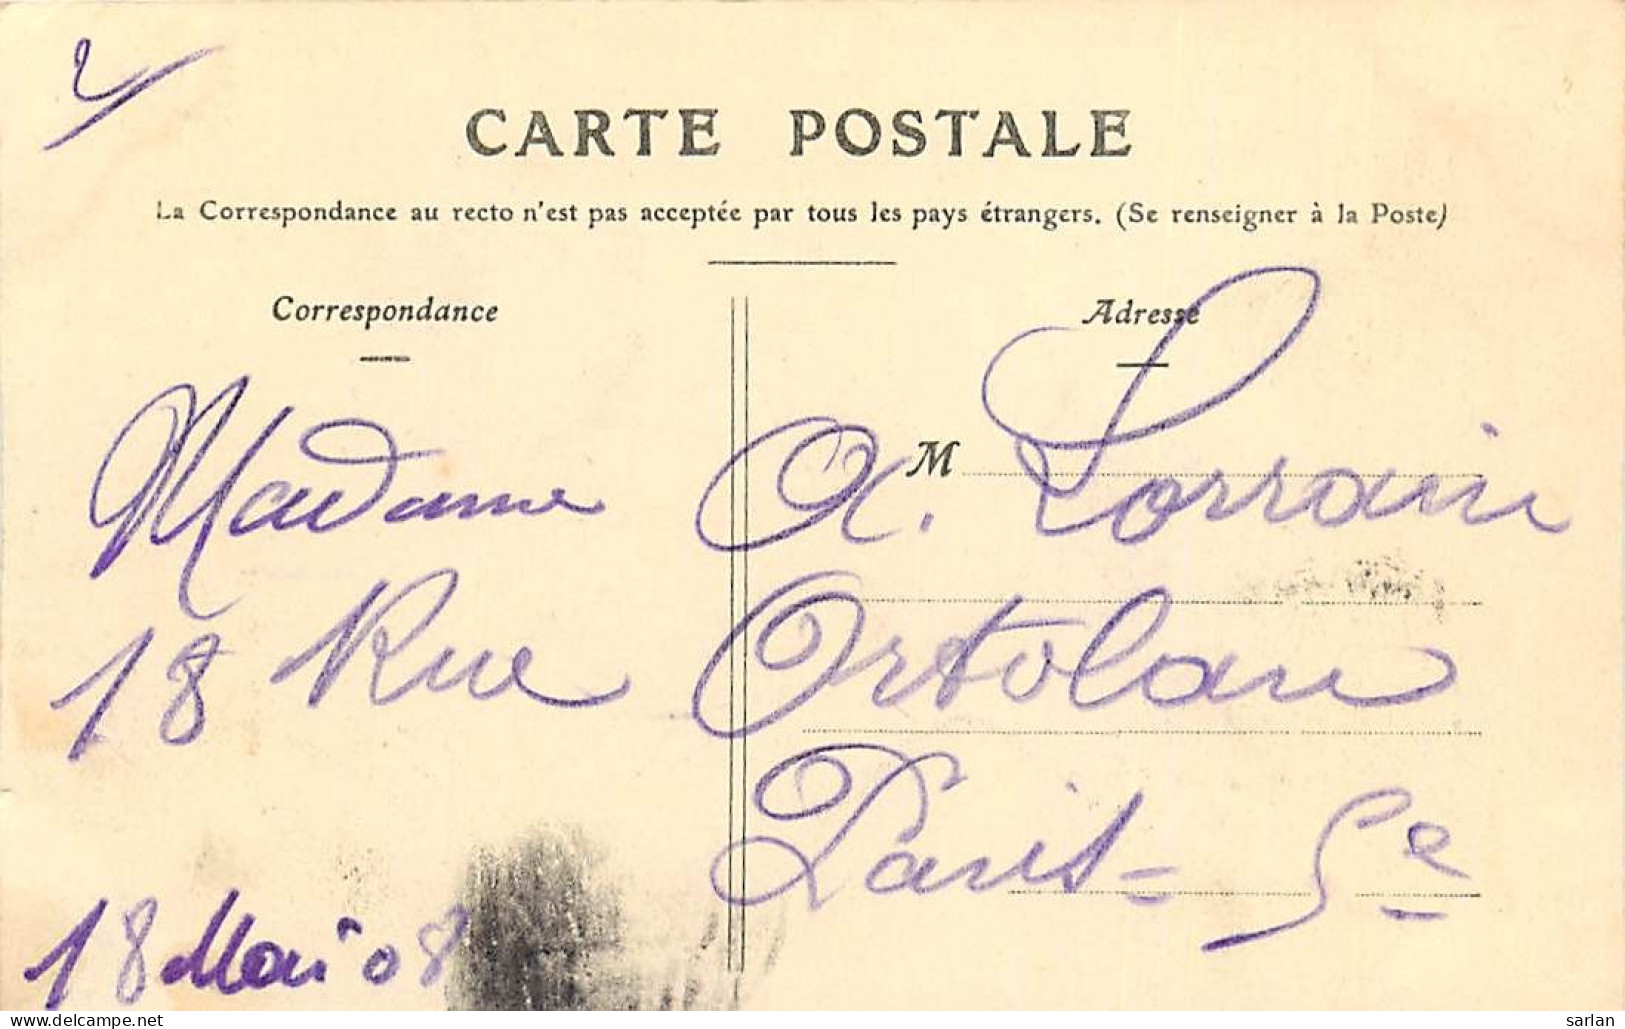 2
CARTE POSTALE
La Correspondance au recto n'est pas acceptée par tous les pays étrangers. (Se renseigner à la Poste)
Correspondance
Adresse
M
Madame A. Lorrain
18 Rue Ortolan
Paris - 5e
18 Mai 08
www.delcampe.net
sarlan